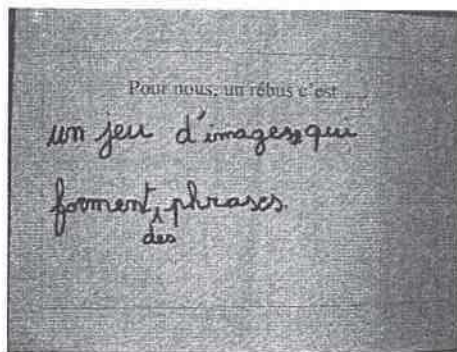 Pour nous, un rébus c'est ....
un jeu d'images, qui
forment phrases.
des